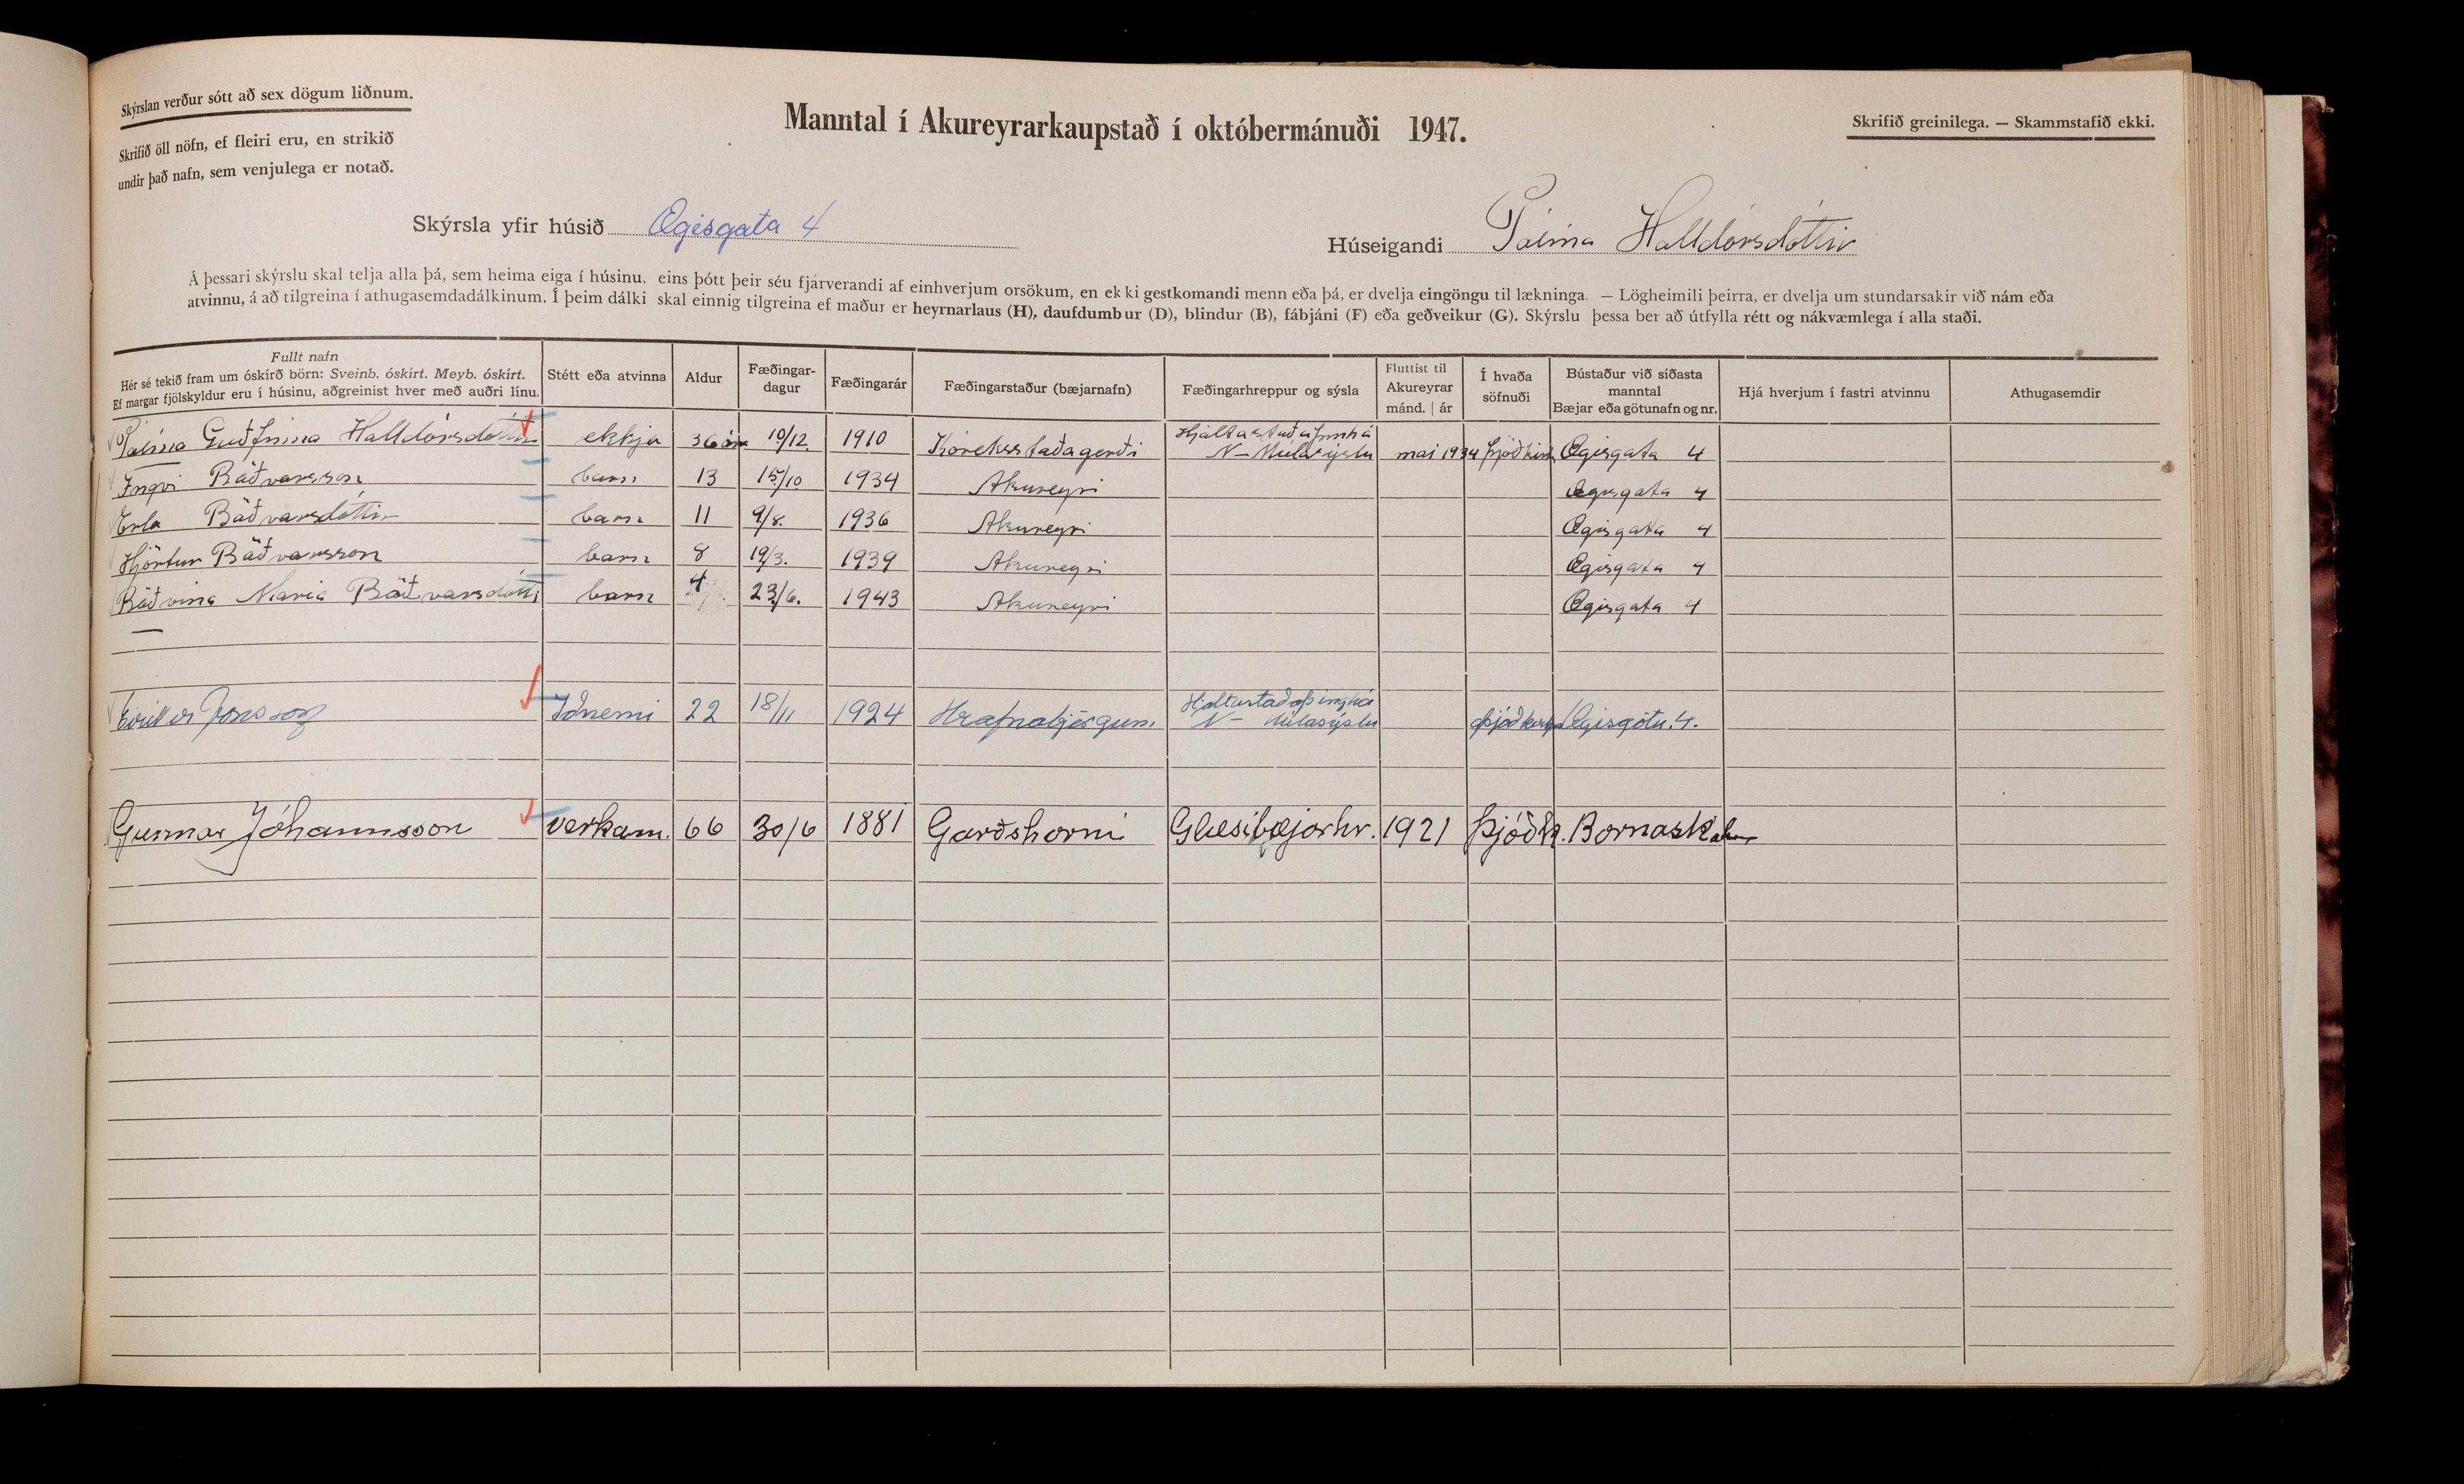 Skýrslan verður sótt að sex dögum liðnum.
Skrifið öll nöfn, ef fleiri eru, en strikið
undir það nafn, sem venjulega er notað.
Manntal í Akureyrarkaupstað í októbermánuði 1947.
Skrifið greinilega. — Skammstafið ekki.
Skýrsla yfir húsið Ægisgata 4
Húseigandi Pálína Halldórsdóttir
Á þessari skýrslu skal telja alla þá, sem heima eiga í húsinu, eins þótt þeir séu fjarverandi af einhverjum orsökum, en ekki gestkomandi menn eða þá, er dvelja eingöngu til lækninga. — Lögheimili þeirra, er dvelja um stundarsakir við nám eða
atvinnu, á að tilgreina í athugasemdadálkinum. Í þeim dálki skal einnig tilgreina ef maður er heyrnarlaus (H), daufdumbur (D), blindur (B), fábjáni (F) eða geðveikur (G). Skýrslu þessa ber að útfylla rétt og nákvæmlega í alla staði.
Fullt nafn
Hér sé tekið fram um óskírð börn: Sveinb. óskírt. Meyb. óskírt.
Ef margar fjölskyldur eru í húsinu, aðgreinist hver með auðri línu.
Stétt eða atvinna
Aldur
Fæðingar-
dagur
Fæðingarár
Fæðingarstaður (bæjarnafn)
Fæðingarhreppur og sýsla
Fluttist til
Akureyrar
mánd. | ár
Í hvaða
söfnuði
Bústaður við síðasta
manntal
Bæjar eða götunafn og nr.
Hjá hverjum í fastri atvinnu
Athugasemdir
Pálína Guðfinna Halldórsdóttir ekkja 36 ára 10/12. 1910 Kóreksstaðagerði Hjaltastaðaþinhá N-Múlasýslu mai 1934 þjóðkirk Ægisgata 4
Ingvi Böðvarsson barn 13 15/10. 1934 Akureyri Ægisgata 4
Erla Böðvarsdóttir barn 11 9/8. 1936 Akureyri Ægisgata 4
Hjörtur Böðvarsson barn 8 19/3. 1939 Akureyri Ægisgata 4
Böðvina María Böðvarsdóttir barn 4 23/6. 1943 Akureyri Ægisgata 4
Eiríkur Jónsson Iðnemi 22 18/11 1924 Hrafnabjörgum. Hjaltastaðaþinghá N- Múlasýslu Ægisgötu. 4.
Gunnar Jóhannsson verkam. 66 30/6 1881 Garðshorni Glæsibæjarhr. 1921 Þjóðk.